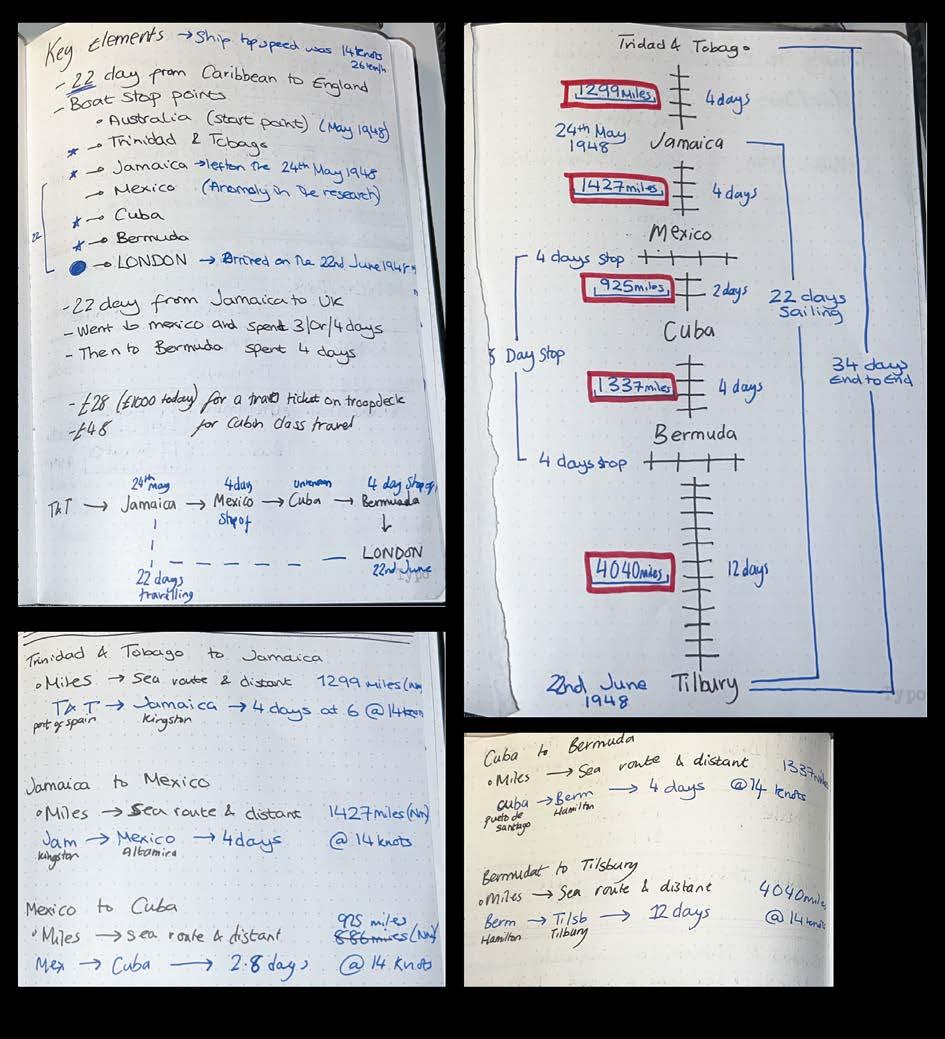 Key Elements → Ship top speed was 14 knots
26 km/h
- 22 day from Caribbean to England
- Boat Stop points
• Australia (start point) (May 1948)
* → Trinidad & Tobags
* → Jamaica → left on the 24th May 1948
→ Mexico (Anomoly in the research)
* → Cuba
* → Bermuda
22
→ LONDON → Arrived on the 22nd June 1948
- 22 day from Jamaica to UK
- Went to mexico and spent 3/or/4 days
- Then to Bermuda spent 4 days
- £28 (£1000 today) for a ticket on troopdeck
- £48 for Cabin class travel
24th may 4day unknown 4 day Stop of
T&T → Jamaica → Mexico → Cuba → Bermuada
Stop of
↓
LONDON
22 days 22nd June
travelling
Typo
Tridad & Tobago
1299 Miles 4 days
24th May
1948 Jamaica
1427 miles 4 days
Mexico
4 days stop
925 miles 2 days
22 days
Sailing
Cuba
Day Stop
34 days
End to End
1337 miles 4 days
Bermuda
4 days stop
4040 miles 12 days
22nd June Tilbury
1948
Typo
Trinidad & Tobago to Jamaica
• Miles → Sea route & distant 1299 miles (Nm)
T&T → Jamaica → 4 days at 6 @ 14
port of spain Kingston
Jamaica to Mexico
• Miles → Sea route & distant 1427 miles (Nm)
Jam → Mexico → 4 days @ 14 knots
Kingston Altamira
Mexico to Cuba
925 miles
• Miles → sea route & distant 886 miles (Nm)
Mex → Cuba → 2.8 days @ 14 Knots
Cuba to Bermuda
• Miles → Sea route & distant 1337 miles
Cuba → Berm → 4 days @ 14 knots
pueto de Hamilton
santiago
Bermudat to Tilsbury
• Miles → Sea route & distant 4040 miles
Berm → Tilsb → 12 days @ 14 knots
Hamilton Tilbury